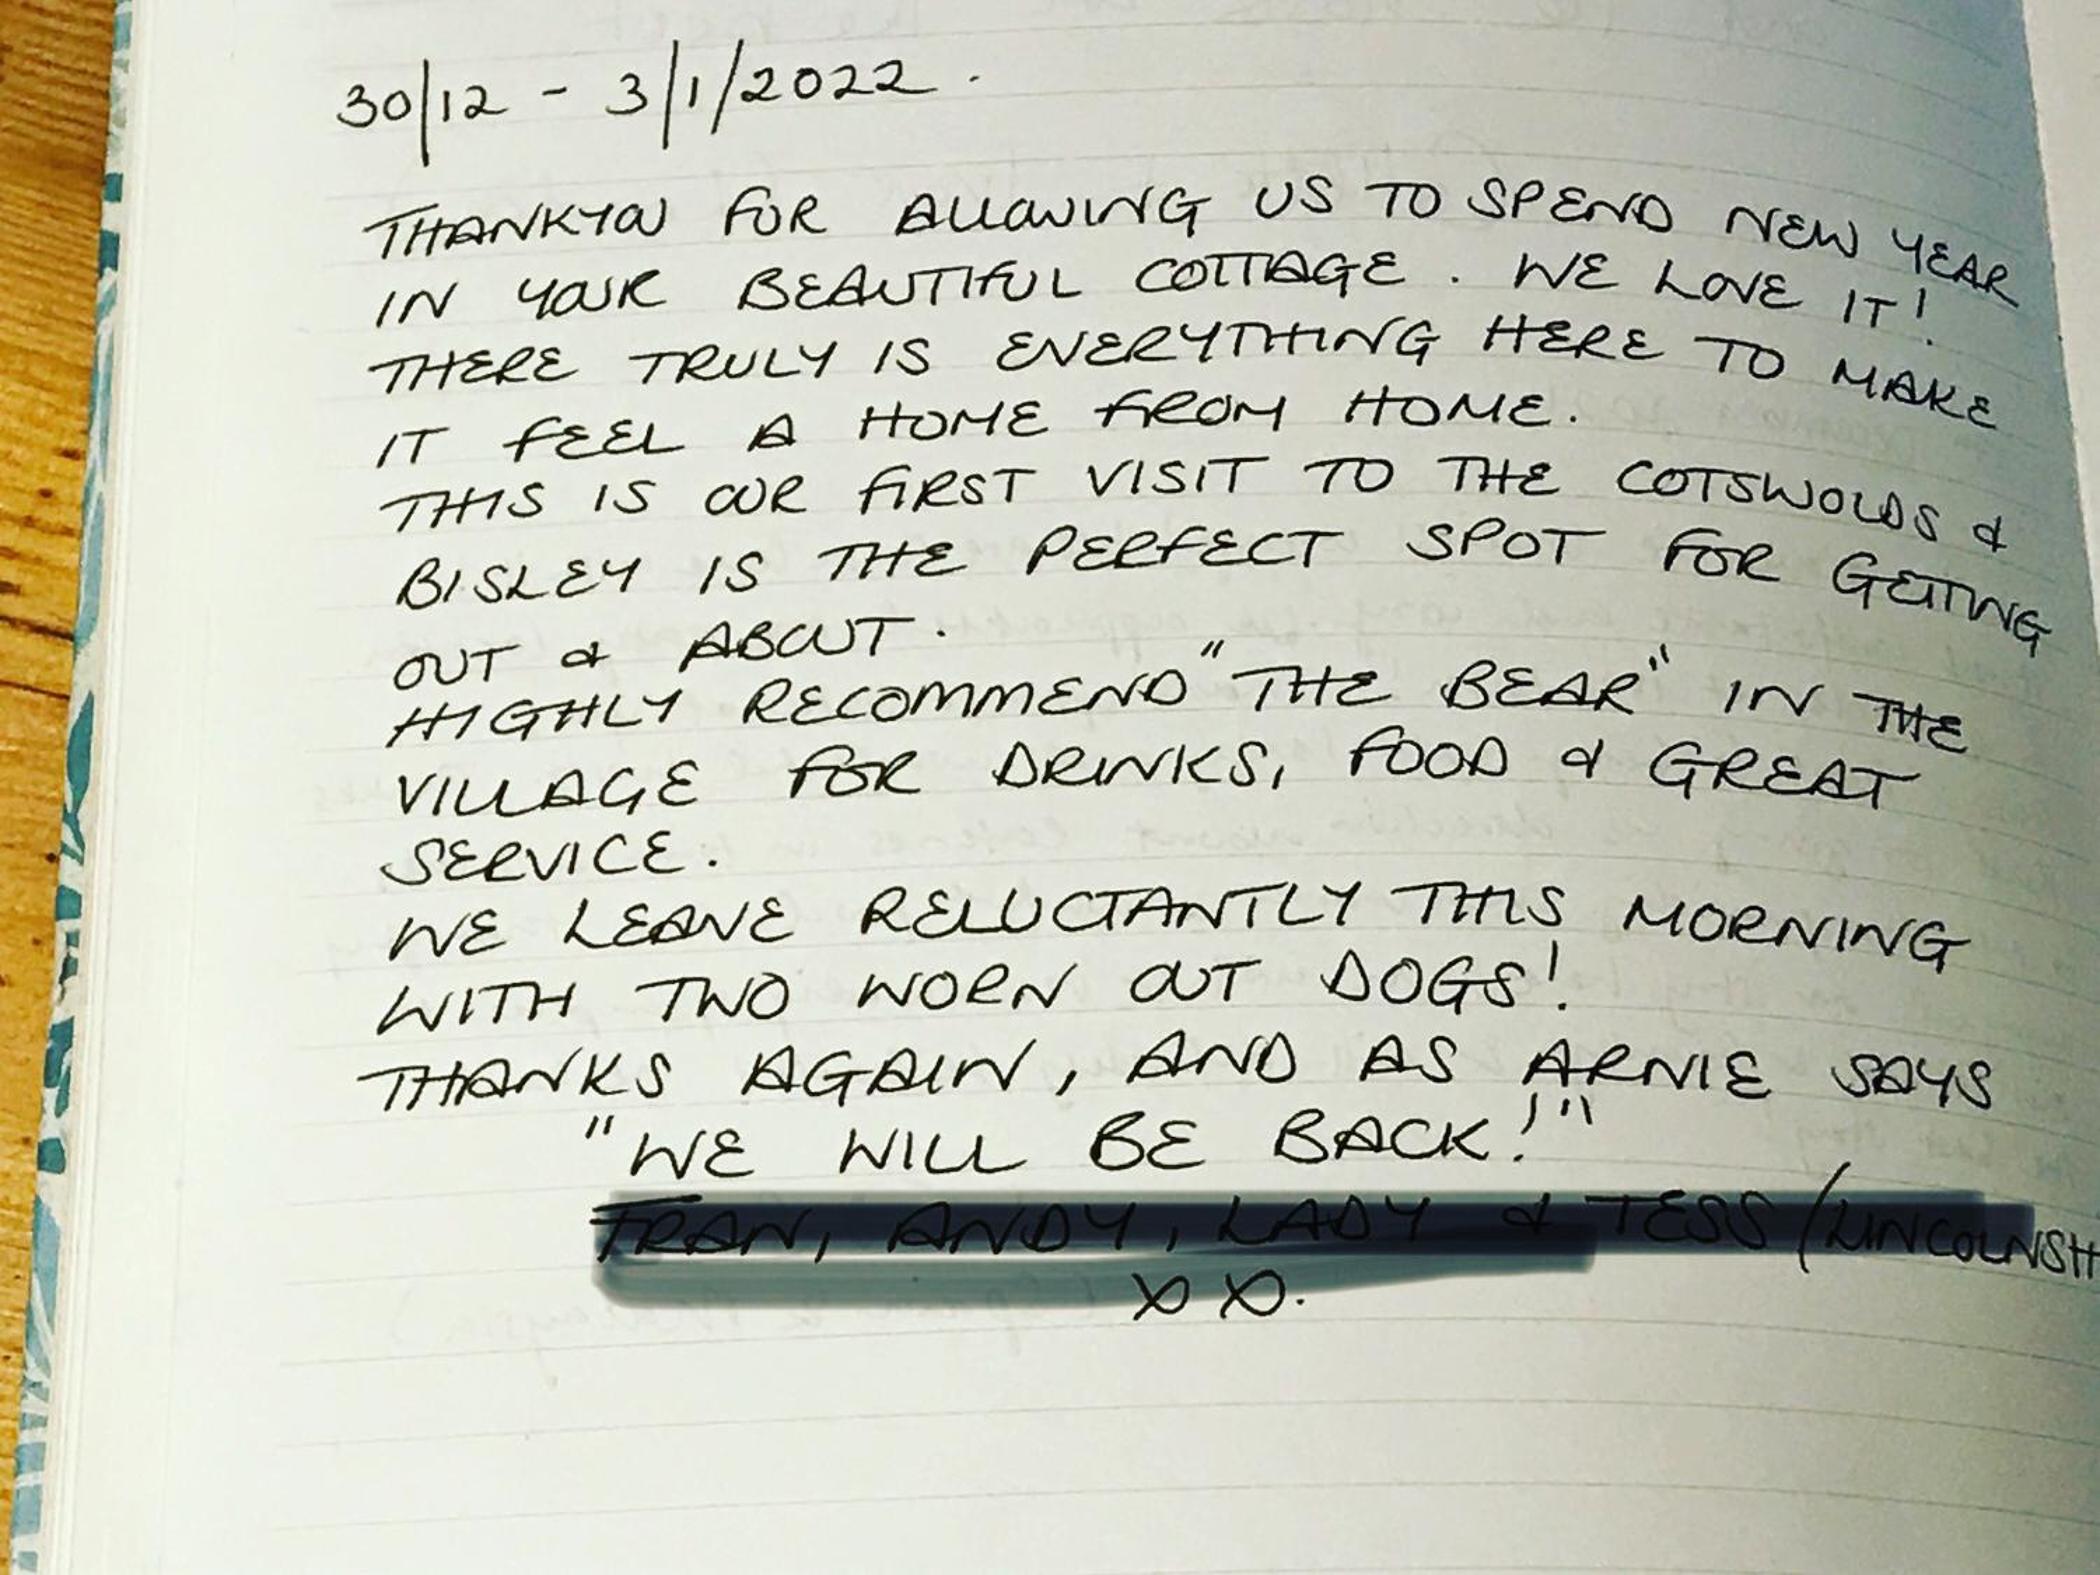 30/12 - 3/1/2022.
THANKYOU FOR ALLOWING US TO SPEND NEW YEAR
IN YOUR BEAUTIFUL COTTAGE. WE LOVE IT!
THERE TRULY IS EVERYTHING HERE TO MAKE
IT FEEL A HOME FROM HOME.
THIS IS OUR FIRST VISIT TO THE COTSWOLDS &
BISLEY IS THE PERFECT SPOT FOR GETTING
OUT & ABOUT.
HIGHLY RECOMMEND "THE BEAR" IN THE
VILLAGE FOR DRINKS, FOOD & GREAT
SERVICE.
WE LEAVE RELUCTANTLY THIS MORNING
WITH TWO WORN OUT DOGS!
THANKS AGAIN, AND AS ARNIE SAYS
"WE WILL BE BACK!"
FRAN, ANDY, LADY & TESS (LINCOLNSH
XX.